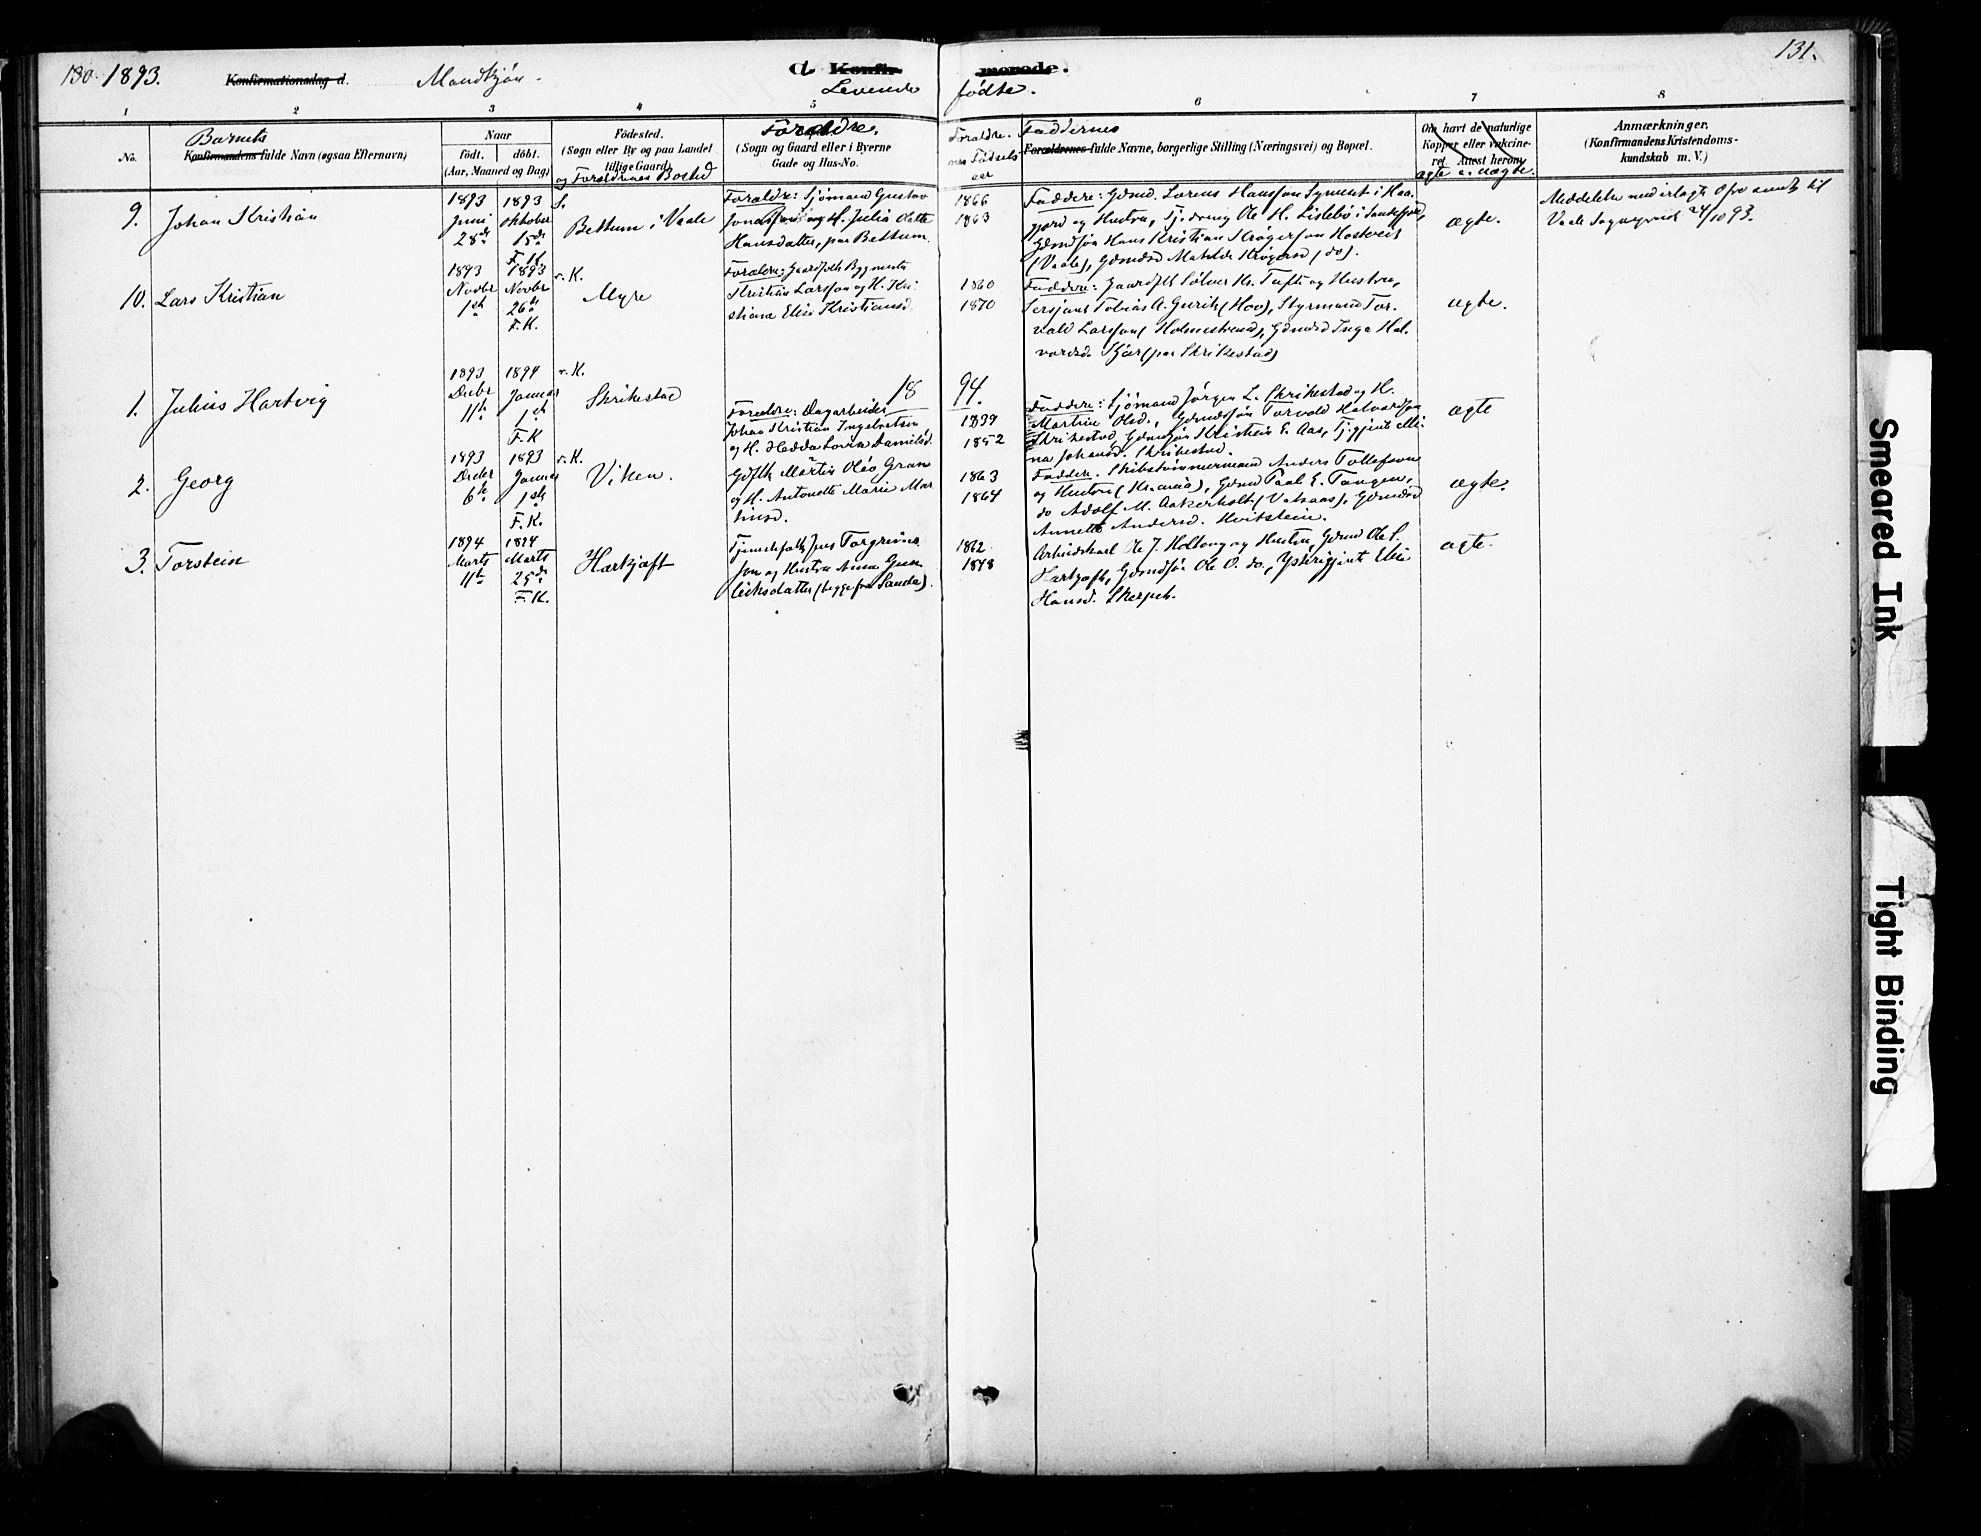 130. 1893. Konfirmationsdag d. Mandkjøn. d. Konfir- merede. 131.
Levende fødte.
1 2 3 4 5 6 7 8
No.
Barnets
Konfirmandens fulde Navn (ogsaa Efternavn)
Naar
født. døbt.
(Aar, Maaned og Dag)
Fødested.
(Sogn eller By og paa Landet
tillige Gaard)
og Forældrenes Bosted
Forældre.
(Sogn og Gaard eller i Byerne
Gade og Hus-No.
Forældre-
nes Fødsels
aar
Faddernes
Forældrenes fulde Navne, borgerlige Stilling (Næringsvei) og Bopæl.
Om havt de naturlige
Kopper eller vakcine-
ret. Attest herom.
ægte e. uægte.
Anmærkninger.
(Konfirmandens Kristendoms-
kundskab m. V.)
9. Johan Kristian
1893
Juni
28de
1893
Oktober
15de
F. K.
S.
Bettum i Vaale
Forældre: Sjømand Gustav
og H. Julie
Hansdatter, paa Bettum.
1866
1863
Faddere: Gdmd. Lorens Hansson i Haa-
gjord og Hustru, Tj.dreng Ole H. Lislebø i Sandefjord,
Gdmdsøn Hans Kristian
(Vaale), Gdmdsd Matilde (do).
ægte.
Meddelelse sendt til
Vaale Sogneprest 24/10 93.
10. Lars Kristian
1893
Novbr
1ste
1893
Novbr
26de
F. K.
v. K.
Myre
Forældre: Gaardfolk
Kristian Larsson og H. Kri-
stiane Elise Kristiansd.
1860
1870
Faddere: Gaardfolk Sølver Kr. Tufte og Hustru,
Sersjant Tobias A. (Hov), Styrmand Tor-
vald Larsson (Holmestrand), Gdmdsd Inga Hal-
vorsd. (paa Skrikestad)
ægte.
1894.
1. Julius Hartvig
1893
Decbr
11te
1894
Januar
1ste
F. K
v. K.
Skrikestad
Forældre: Dagarbeider
Johan Kristian Ingebretsen,
og H. Hedda Lovise Danielsd.
1839
1852
Faddere: Sjømand Jørgen L. Skrikestad og H.
Martine Olsd., Gdmdsøn Torvald Halvorsson
Skrikestad, Gdmdsøn Kristian E. Aas, Tj.pjente Mi-
na Johansd. Skrikestad.
ægte
2. Georg
1893
Decbr
6te
1893
Januar
1ste
F. K.
v. K.
Viken.
Gdflk Martin Olsson Gran
og H. Antonette Marie Mar-
tinsd.
1863
1864
Faddere. Skibstømmermand Anders Tollefsen
og Hustru (Kr.ania), Gdmd Paal E. Tangen,
do Adolf M. Aakerholt (Vaksaas), Gdmdsd
Annette Andersd. Hvitstein.
ægte.
3. Torstein
1894
Marts
11te
1894
Marts
25de
F. K.
Hartgaft
Tjenestefolk Jens Torgrims-
søn og Hustru Anna Gun-
leiksdatter (begge fra Sande).
1862
1848
Arbeidskarl Ole J. Holtung og Hustru, Gdmd Ole S.
Hartgaft, Gdmdsøn Ole O. do., Ysterigjente Elise
Hansd. Skerpeh.
ægte.
Smeared Ink
Tight Binding